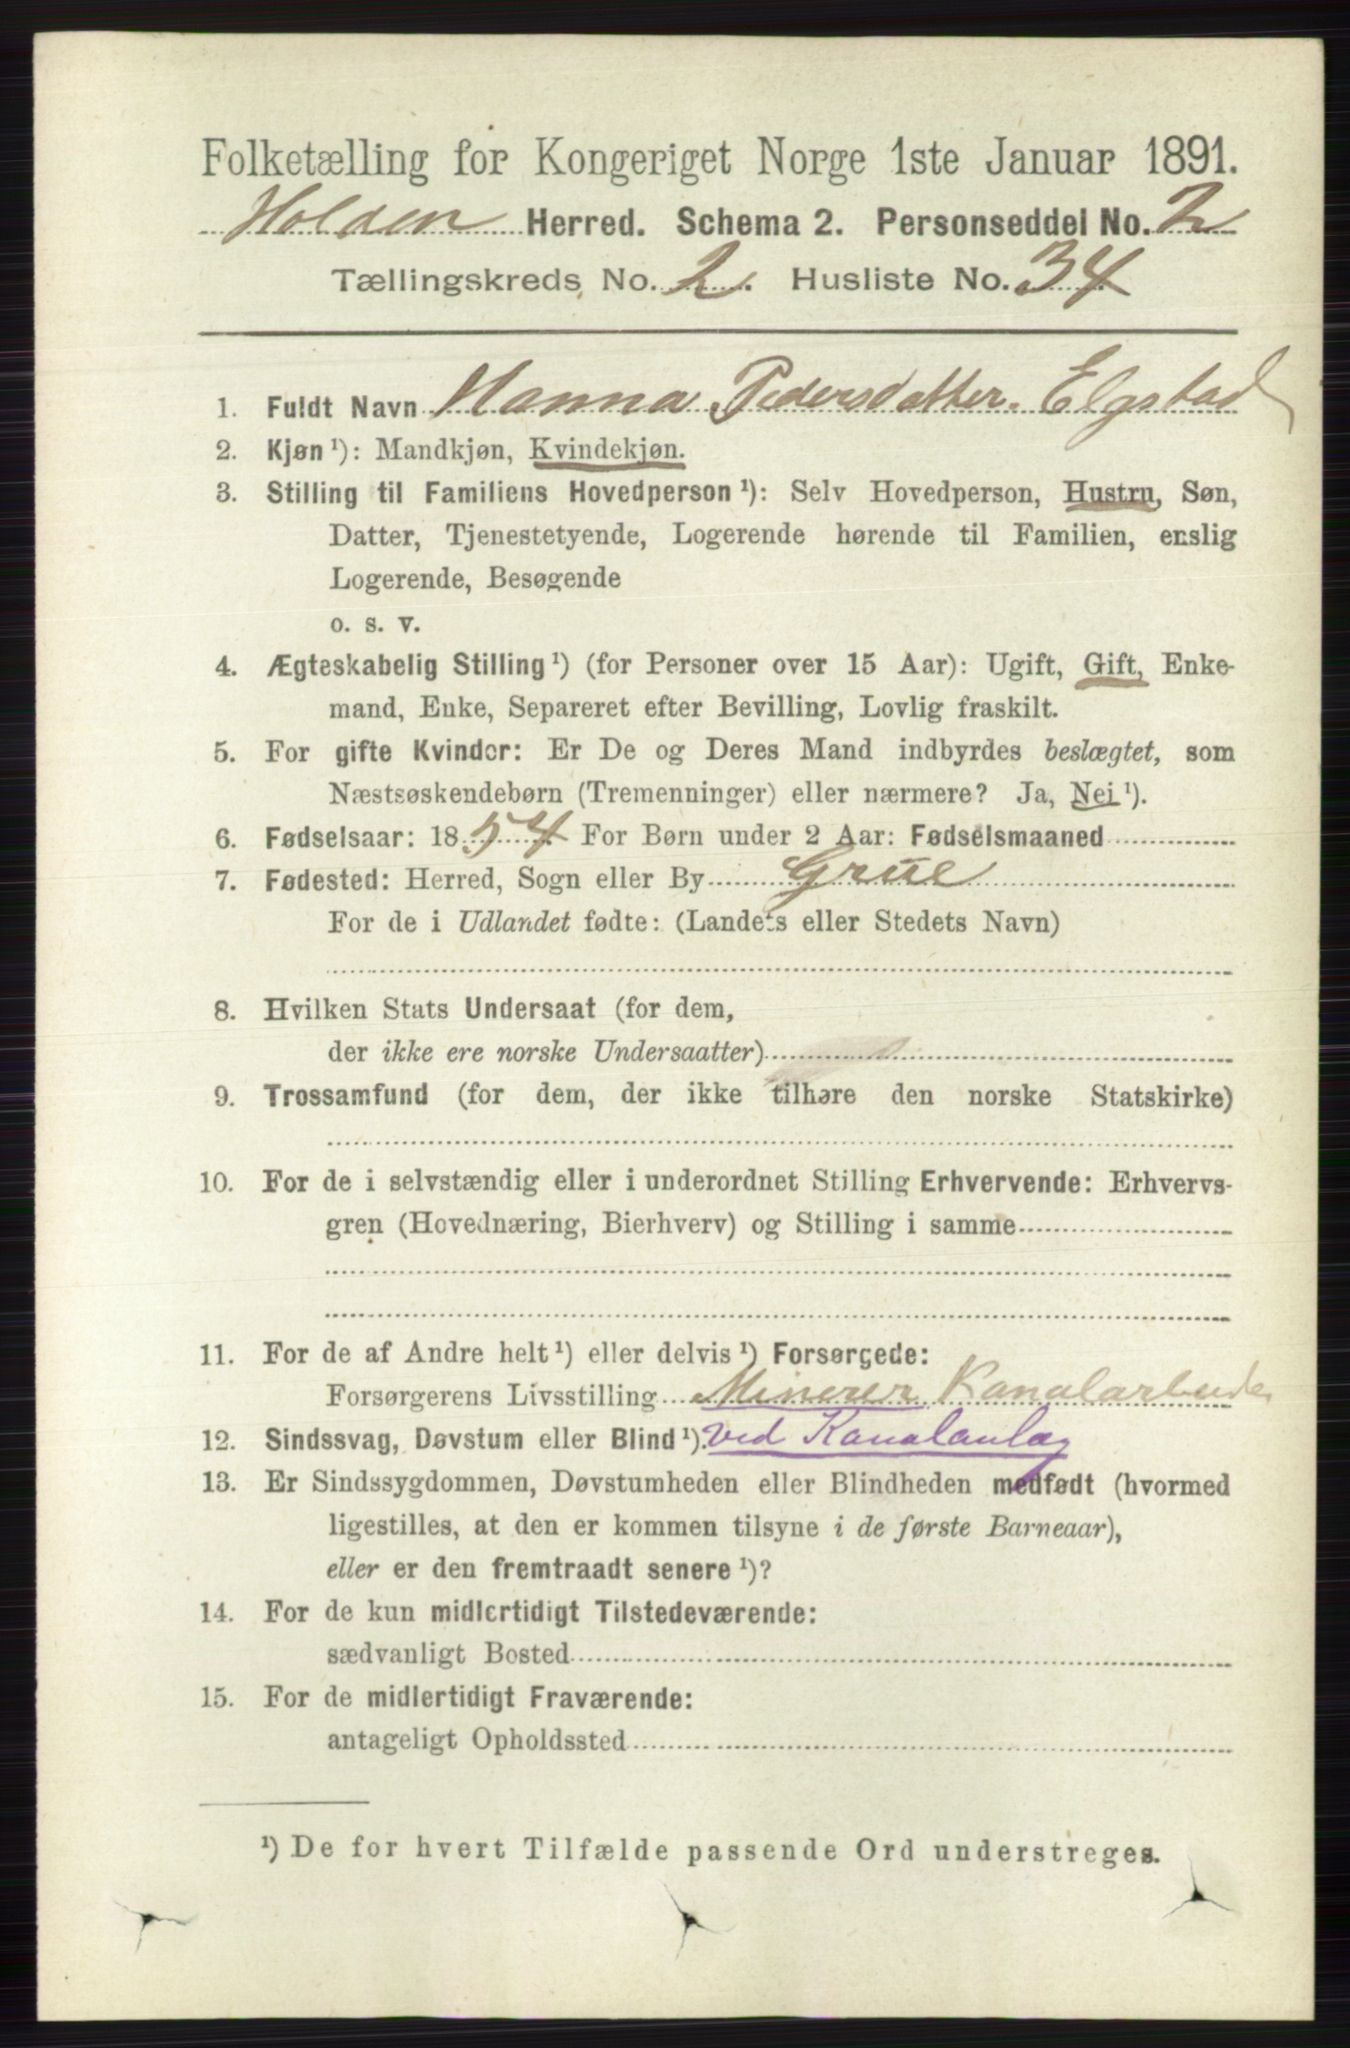 Folketælling for Kongeriget Norge 1ste Januar 1891.
Holden Herred. Schema 2. Personseddel No. 2
Tællingskreds No. 2. Husliste No. 34.
1. Fuldt Navn Hanna Pedersdatter. Elgstad
2. Kjøn ¹): Mandkjøn, Kvindekjøn.
3. Stilling til Familiens Hovedperson ¹): Selv Hovedperson, Hustru, Søn,
Datter, Tjenestetyende, Logerende hørende til Familien, enslig
Logerende, Besøgende
o. s. v.
4. Ægteskabelig Stilling ¹) (for Personer over 15 Aar): Ugift, Gift, Enke-
mand, Enke, Separeret efter Bevilling, Lovlig fraskilt.
5. For gifte Kvinder: Er De og Deres Mand indbyrdes beslægtet, som
Næstsøskendebørn (Tremenninger) eller nærmere? Ja, Nei ¹).
6. Fødselsaar: 1854. For Børn under 2 Aar: Fødselsmaaned
7. Fødested: Herred, Sogn eller By Grue
For de i Udlandet fødte: (Landets eller Stedets Navn)
8. Hvilken Stats Undersaat (for dem,
der ikke ere norske Undersaatter)
9. Trossamfund (for dem, der ikke tilhøre den norske Statskirke)
10. For de i selvstændig eller i underordnet Stilling Erhvervende: Erhvervs-
gren (Hovednæring, Bierhverv) og Stilling i samme
11. For de af Andre helt ¹) eller delvis ¹) Forsørgede:
Forsørgerens Livsstilling Minerer Kanalarbeider
12. Sindssvag, Døvstum eller Blind ¹). ved Kanalanlæg
13. Er Sindssygdommen, Døvstumheden eller Blindheden medfødt (hvormed
ligestilles, at den er kommen tilsyne i de første Barneaar),
eller er den fremtraadt senere ¹)?
14. For de kun midlertidigt Tilstedeværende:
sædvanligt Bosted
15. For de midlertidigt Fraværende:
antageligt Opholdssted
¹) De for hvert Tilfælde passende Ord understreges.